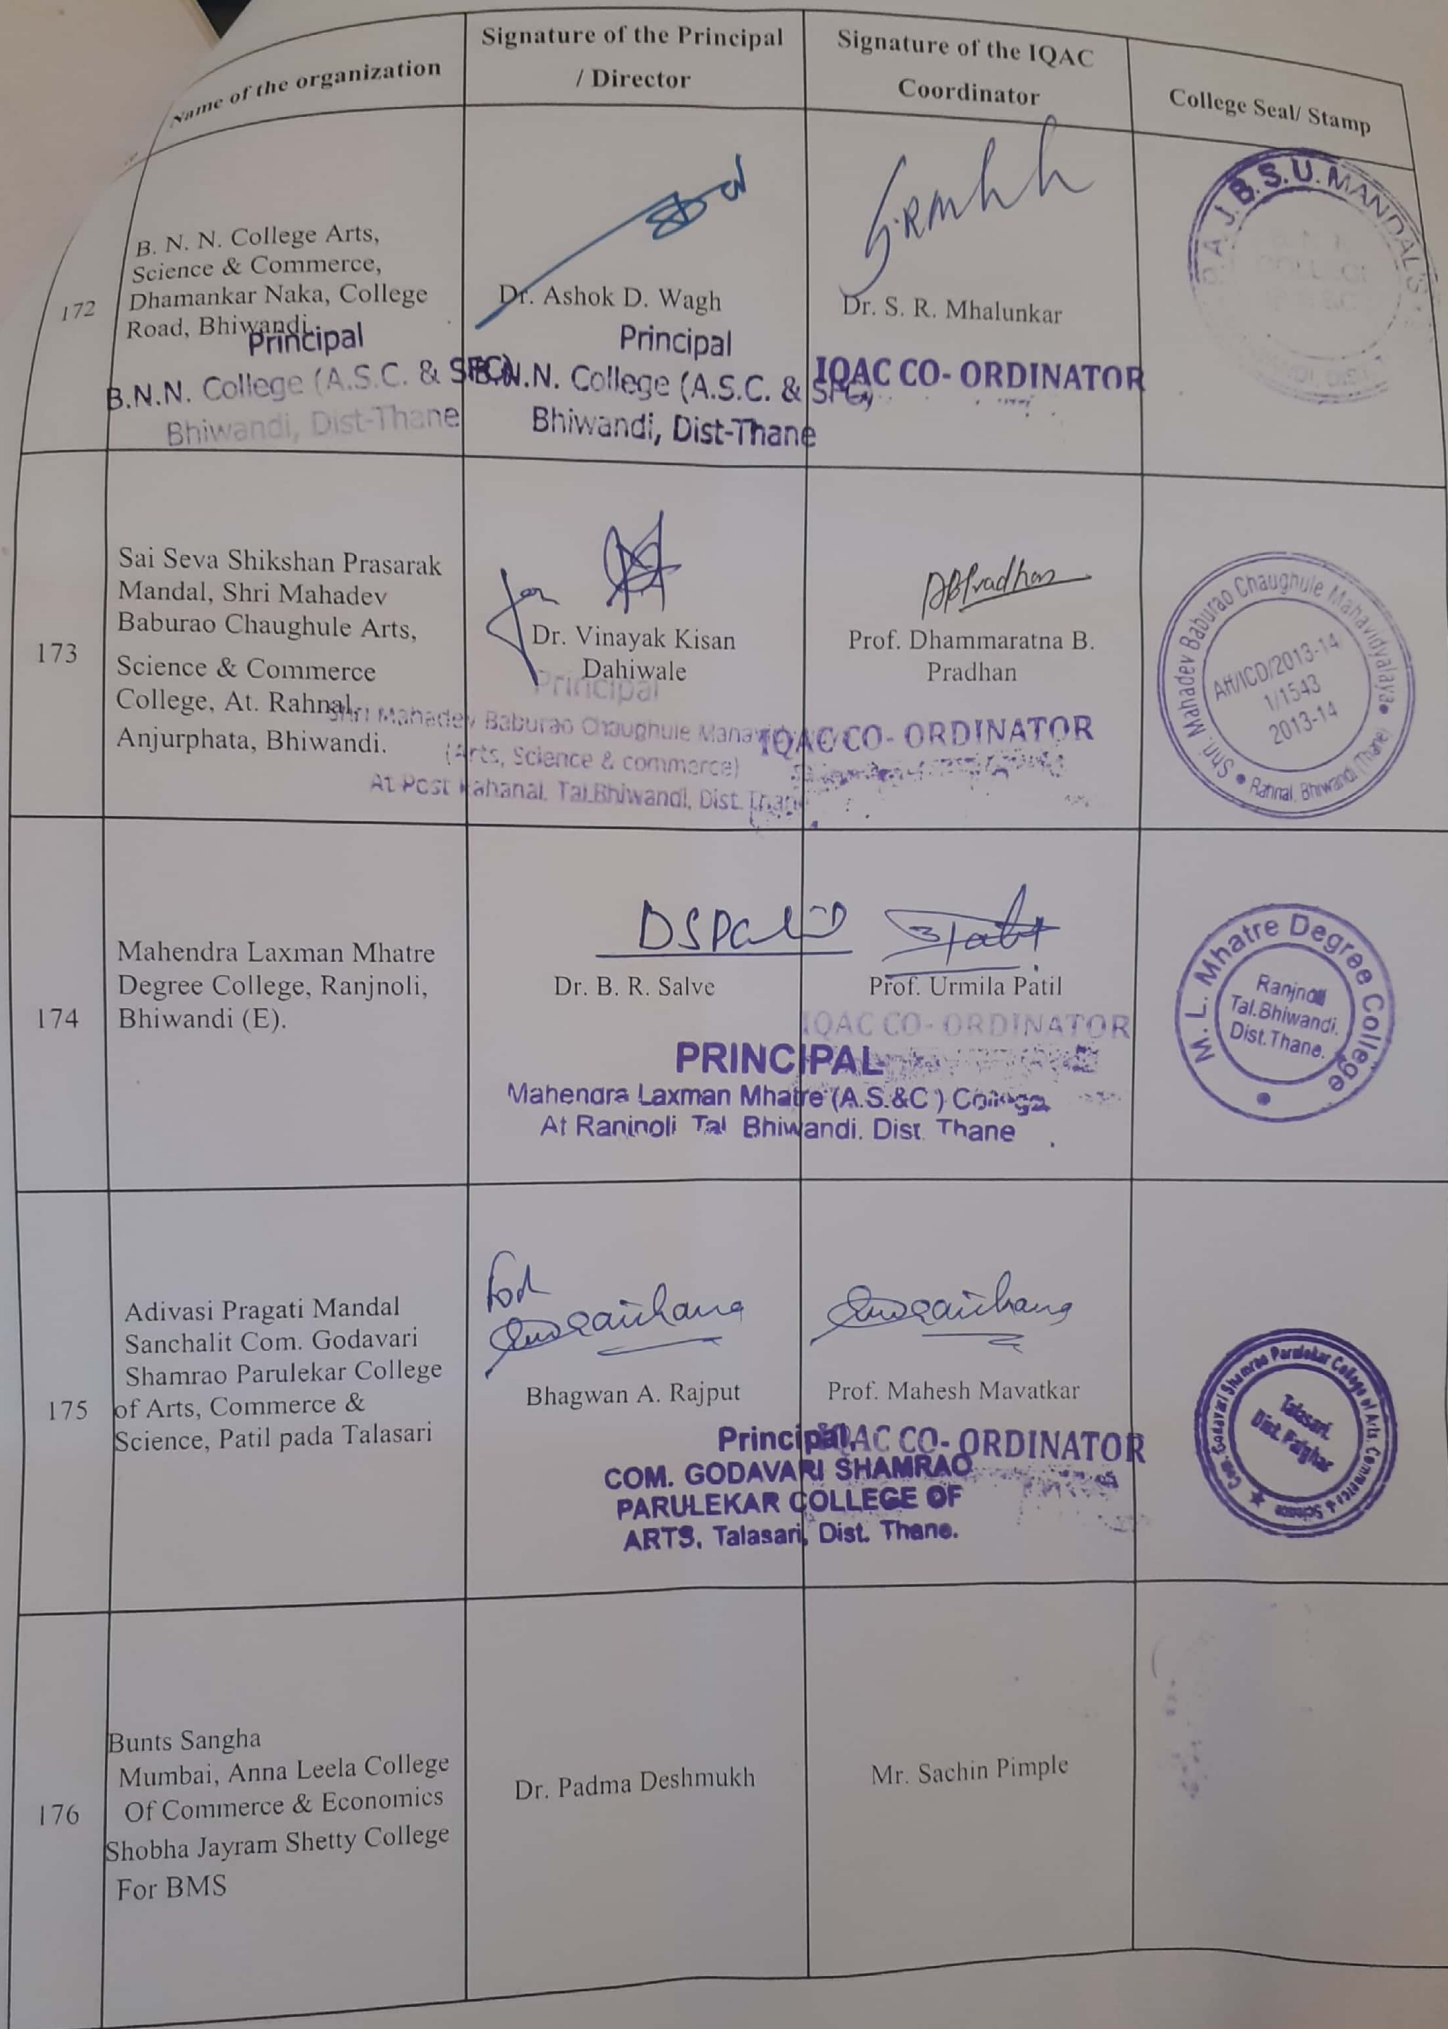 Name of the organization
Signature of the Principal
/ Director
Signature of the IQAC
Coordinator
College Seal/ Stamp
172
B. N. N. College Arts,
Science & Commerce,
Dhamankar Naka, College
Road, Bhiwandi
Principal
B.N.N. College (A.S.C. & SFC)
Bhiwandi, Dist-Thane
Dr. Ashok D. Wagh
Principal
B.N.N. College (A.S.C. & SFC)
Bhiwandi, Dist-Thane
Dr. S. R. Mhalunkar
IQAC CO- ORDINATOR
J.B.S.U. MANDAL'S
173
Sai Seva Shikshan Prasarak
Mandal, Shri Mahadev
Baburao Chaughule Arts,
Science & Commerce
College, At. Rahnal,
Anjurphata, Bhiwandi.
for
Dr. Vinayak Kisan
Dahiwale
Principal
Shri Mahadev Baburao Chaughule
(Arts, Science & commerce)
At Post Rahanal, Tal.Bhiwandi, Dist. Thane
DBPradhan
Prof. Dhammaratna B.
Pradhan
IQAC CO- ORDINATOR
Shri. Mahadev Baburao Chaughule Mahavidyalaya
Aff/ICD/2013-14
1/1543
2013-14
Rahnal, Bhiwandi (Thane)
174
Mahendra Laxman Mhatre
Degree College, Ranjnoli,
Bhiwandi (E).
Dr. B. R. Salve
Prof. Urmila Patil
IQAC CO- ORDINATOR
PRINCIPAL
Mahendra Laxman Mhatre (A.S.&C ) College
At Raninoli Tal Bhiwandi. Dist. Thane
M. L. Mhatre Degree College
Ranjnoli
Tal.Bhiwandi.
Dist.Thane.
175
Adivasi Pragati Mandal
Sanchalit Com. Godavari
Shamrao Parulekar College
of Arts, Commerce &
Science, Patil pada Talasari
Bhagwan A. Rajput
Prof. Mahesh Mavatkar
Principal,
IQAC CO- ORDINATOR
COM. GODAVARI SHAMRAO
PARULEKAR COLLEGE OF
ARTS, Talasari, Dist. Thane.
Com. Godavari Shamrao Parulekar College of Arts, Commerce & Science
Talasari,
Dist. Palghar
176
Bunts Sangha
Mumbai, Anna Leela College
Of Commerce & Economics
Shobha Jayram Shetty College
For BMS
Dr. Padma Deshmukh
Mr. Sachin Pimple